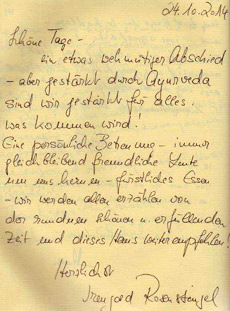 24.10.2014
Schöne Tage -
ein etwas wehmütiger Abschied
- aber gestärkt durch Ayurveda
sind wir gestärkt für alles.
was kommen wird!
Eine persönliche Betreuung - immer
gleichbleibend freundliche Leute
um uns herum - fürstliches Essen
- wir werden allen erzählen von
der runden schönen u. erfüllenden
Zeit und dieses Haus weiterempfehlen!
Herzlichst
Irmgard Rosenstengel